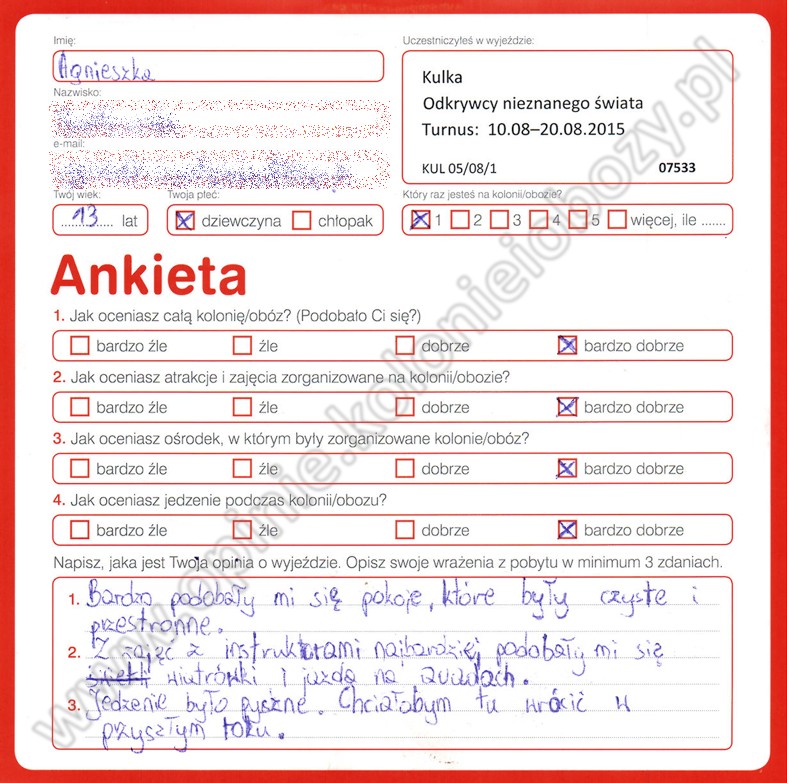 Imię:
Agnieszka
Nazwisko:
e-mail:
Twój wiek:
13 lat
Twoja płeć:
dziewczyna chłopak
Uczestniczyłeś w wyjeździe:
Kulka
Odkrywcy nieznanego świata
Turnus: 10.08–20.08.2015
KUL 05/08/1 07533
Który raz jesteś na kolonii/obozie?
1 2 3 4 5 więcej, ile .......
Ankieta
1. Jak oceniasz całą kolonię/obóz? (Podobało Ci się?)
bardzo źle źle dobrze bardzo dobrze
2. Jak oceniasz atrakcje i zajęcia zorganizowane na kolonii/obozie?
bardzo źle źle dobrze bardzo dobrze
3. Jak oceniasz ośrodek, w którym były zorganizowane kolonie/obóz?
bardzo źle źle dobrze bardzo dobrze
4. Jak oceniasz jedzenie podczas kolonii/obozu?
bardzo źle źle dobrze bardzo dobrze
Napisz, jaka jest Twoja opinia o wyjeździe. Opisz swoje wrażenia z pobytu w minimum 3 zdaniach.
1. Bardzo podobały mi się pokoje, które były czyste i
przestronne.
2. Z zajęć z instruktorami najbardziej podobały mi się
wiatrówki i jazda na quadach.
3. Jedzenie było pyszne. Chciałabym tu wrócić w
przyszłym roku.
www.opinie.kolonieiobozy.pl